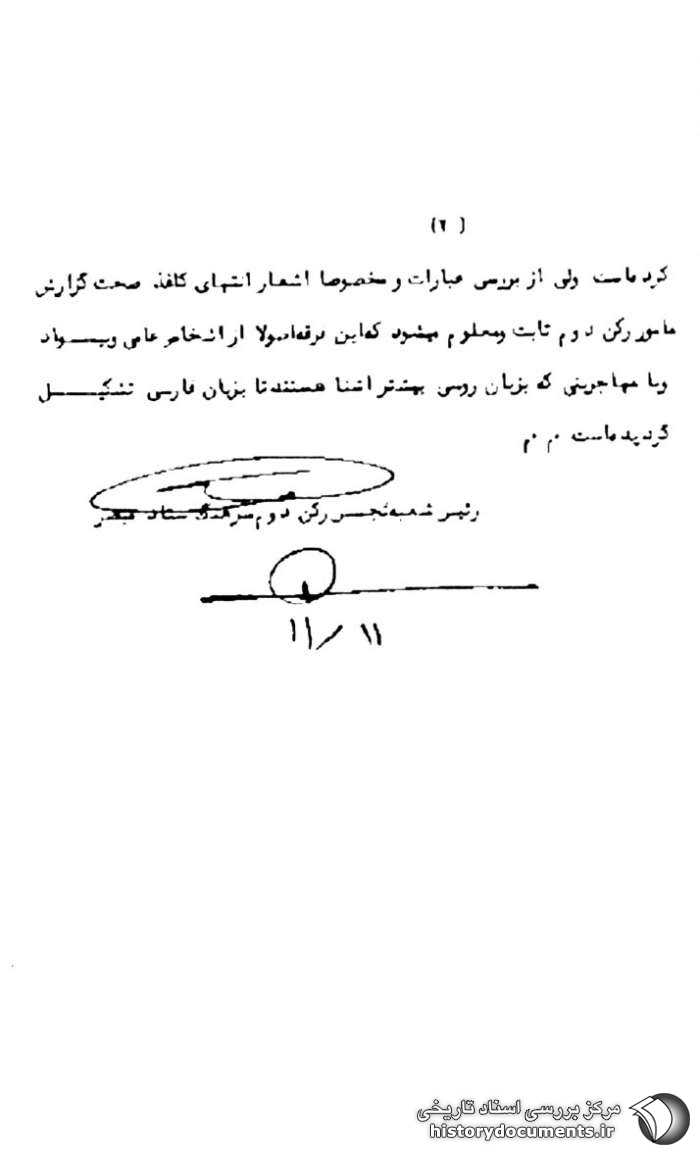 (۲)
کرده‌است ولی از بررسی عبارات و مخصوصا اشعار انتهای کاغذ صحت گزارش
مامور رکن دوم ثابت ومعلوم میشود که‌این فرقه‌اصولا از اشخاص عامی وبیسواد
ویا مهاجرینی که بزبان روسی بیشتر اشنا هستند تا بزبان فارسی تشکیل
گردیده‌است م م
رئیس شعبه‌تجسس رکن دوم‌سرهنگ ستاد مبصر
۱۱/۱۱
مرکز بررسی اسناد تاریخی
historydocuments.ir